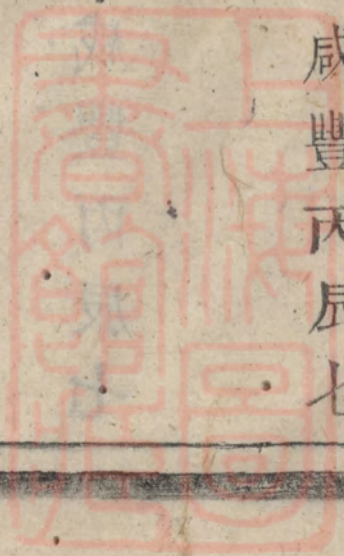 咸豐丙辰七
上海圖
書館藏